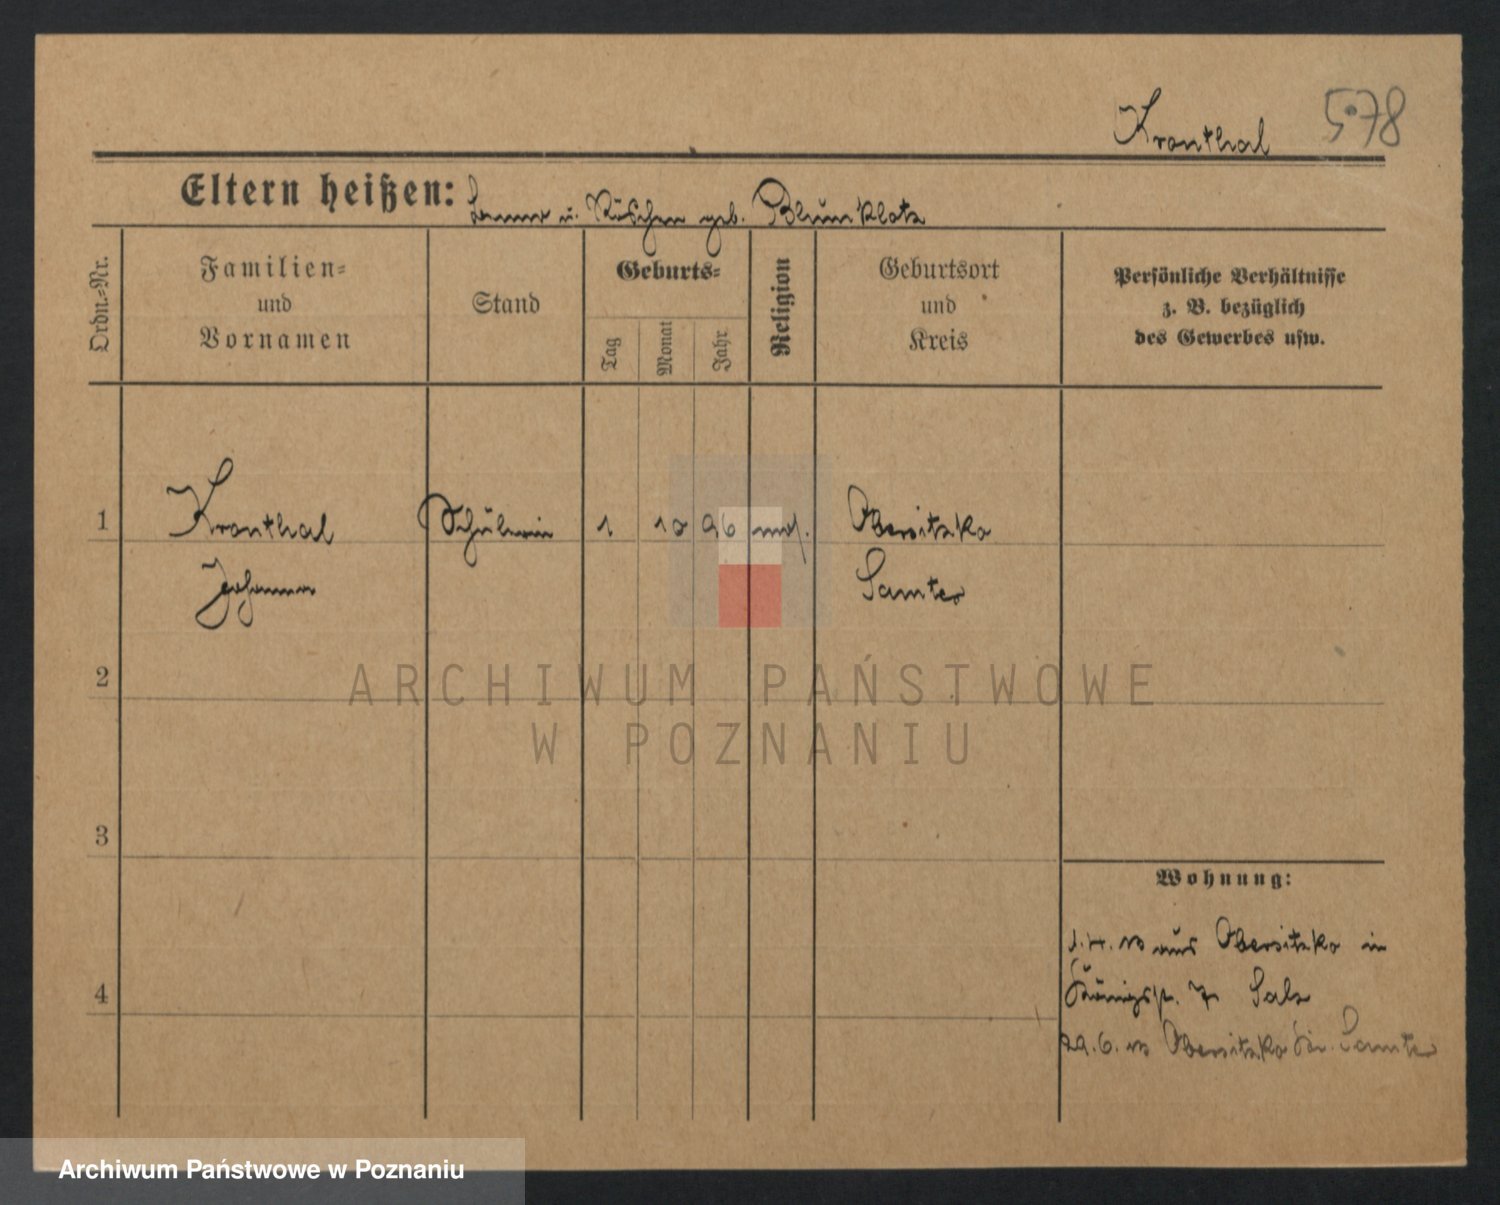 Kronthal 578
Eltern heißen: u. Röschen geb. Blumklotz
Ordn.=Nr.
Familien=
und
Vornamen
Stand
Geburts=
Tag
Monat
Jahr
Religion
Geburtsort
und
Kreis
Persönliche Verhältnisse
z. B. bezüglich
des Gewerbes usw.
1 Kronthal Schülerin 1 10 96 mos. Obersitzko
Johanna Samter
2
3
4
Wohnung:
1. 4. 13 aus Obersitzko in
Königspl. 7 Salz
29. 6. 13 Obersitzko Kr. Samter
ARCHIWUM PAŃSTWOWE
W POZNANIU
Archiwum Państwowe w Poznaniu